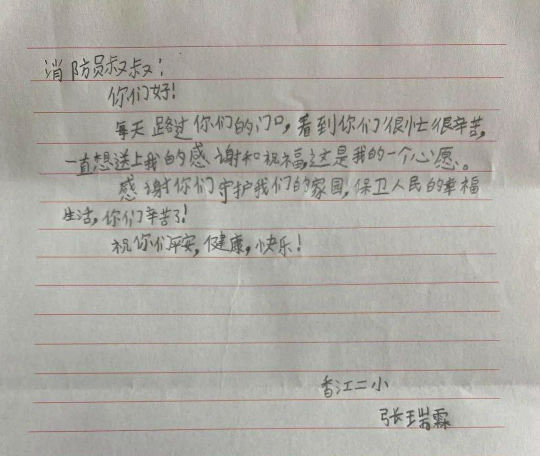 消防员叔叔：
你们好！
每天路过你们的门口，看到你们很忙很辛苦，
一直想送上我的感谢和祝福，这是我的一个心愿。
感谢你们守护我们的家园，保卫人民的幸福
生活，你们辛苦了！
祝你们平安，健康，快乐！
香江二小
张瑞霖